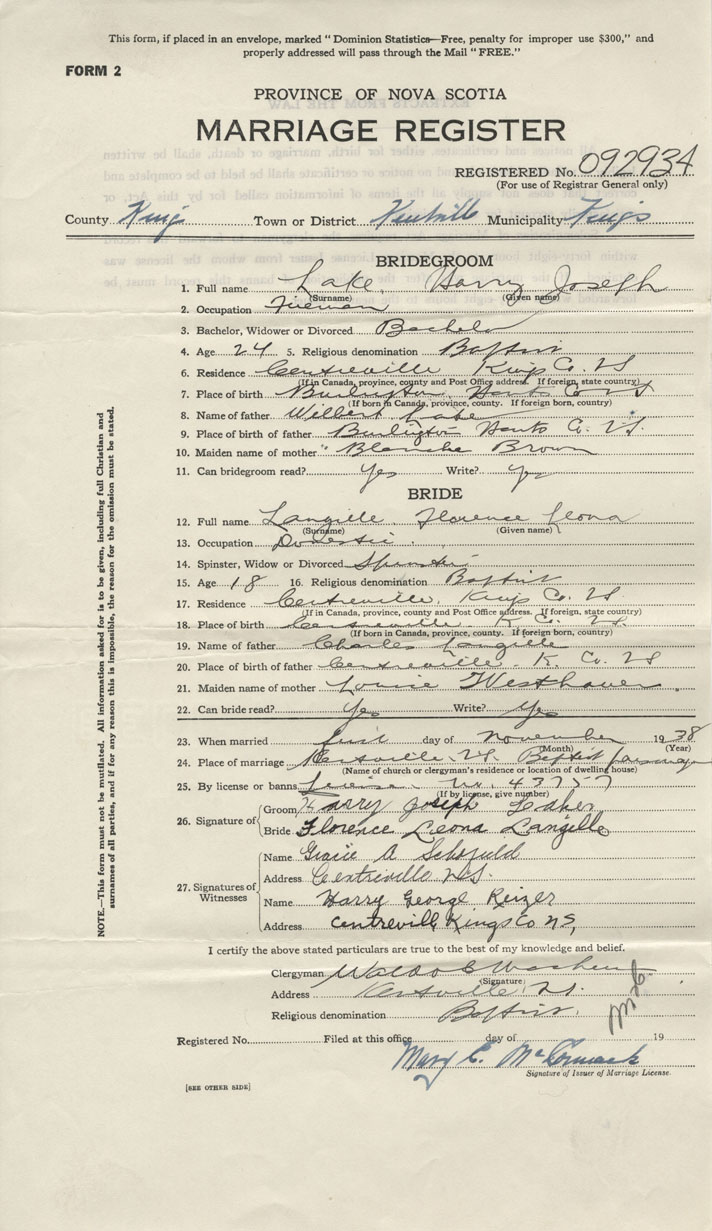 This form, if placed in an envelope, marked "Dominion Statistics—Free, penalty for improper use $300," and
properly addressed will pass through the Mail "FREE."
FORM 2
PROVINCE OF NOVA SCOTIA
MARRIAGE REGISTER
REGISTERED No. 092934
(For use of Registrar General only)
County Kings Town or District Kentville Municipality Kings
BRIDEGROOM
1. Full name Lake, Harry Joseph
(Surname) (Given name)
2. Occupation Fireman
3. Bachelor, Widower or Divorced Bachelor
4. Age 24 5. Religious denomination Baptist
6. Residence Centreville Kings Co. NS
(If in Canada, province, county and Post Office address. If foreign, state country)
7. Place of birth Burlington Hants Co NS
(If born in Canada, province, county. If foreign born, country)
8. Name of father Willert Lake
9. Place of birth of father Burlington Hants Co. NS.
10. Maiden name of mother Blanche Brown
11. Can bridegroom read? Yes Write? Yes
BRIDE
12. Full name Langille Florence Leona
(Surname) (Given name)
13. Occupation Domestic
14. Spinster, Widow or Divorced Spinster
15. Age 18 16. Religious denomination Baptist
17. Residence Centreville, Kings Co. NS
(If in Canada, province, county and Post Office address. If foreign, state country)
18. Place of birth Centreville K Co. NS.
(If born in Canada, province, county. If foreign born, country)
19. Name of father Charles Langille
20. Place of birth of father Centreville. K. Co. NS
21. Maiden name of mother Louise Westhaver
22. Can bride read? Yes Write? Yes
23. When married first day of November 1938
(Month) (Year)
24. Place of marriage NS. Baptist parsonage
(Name of church or clergyman's residence or location of dwelling house)
25. By license or banns License No. 43757
(If by license, give number)
26. Signature of Groom Harry Joseph
Bride Florence Leona Langille
27. Signatures of Witnesses
Name A Schofield
Address Centreville N.S.
Name Harry George Keizer
Address Centrevill Kings Co N.S,
I certify the above stated particulars are true to the best of my knowledge and belief.
Clergyman Waldo C
(Signature)
Address N.S.
Religious denomination Baptist.
Registered No. Filed at this office day of 19
Mary C. McCormack
Signature of Issuer of Marriage License.
[SEE OTHER SIDE]
NOTE.—This form must not be mutilated. All information asked for is to be given, including full Christian and
surnames of all parties, and if for any reason this is impossible, the reason for the omission must be stated.